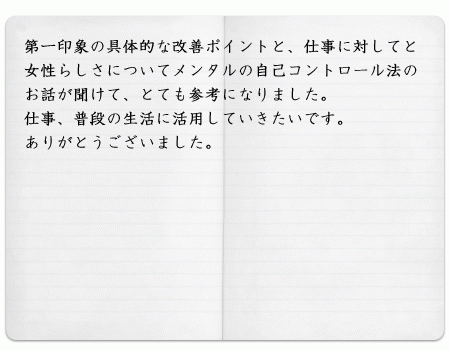 第一印象の具体的な改善ポイントと、仕事に対してと
女性らしさについてメンタルの自己コントロール法の
お話が聞けて、とても参考になりました。
仕事、普段の生活に活用していきたいです。
ありがとうございました。